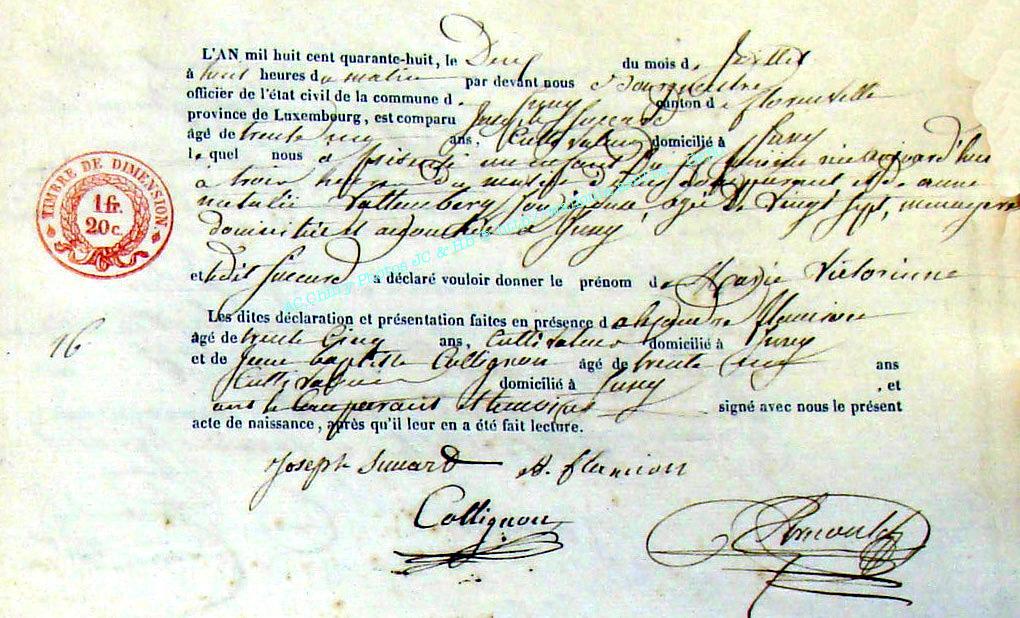 L'AN mil huit cent quarante-huit, le Deux du mois de Juillet
à huit heures du matin par devant nous Bourgmestre
officier de l'état civil de la commune de canton de florenville
province de Luxembourg, est comparu Joseph Suscard
âgé de trente cinq ans, Cultivateur domicilié à
lequel nous a présenté un enfant du sexe féminin né aujourd'hui
a trois heures du matin de lui comparant et de anne
natalie son épouse, agée de vingt sept, menagere
domiciliés a
et ledit a déclaré vouloir donner le prénom de Marie Victorinne
Les dites déclaration et présentation faites en présence d alexandre flamion
16
âgé de trente Cinq ans, Cultivateur domicilié à
et de Jean baptiste Collignon âgé de trente cinq ans
Cultivateur domicilié à , et
ont le Comparant et temoins signé avec nous le présent
acte de naissance, après qu'il leur en a été fait lecture.
TIMBRE DE DIMENSION
1 fr.
20 c.
Joseph A. flamion
Collignon